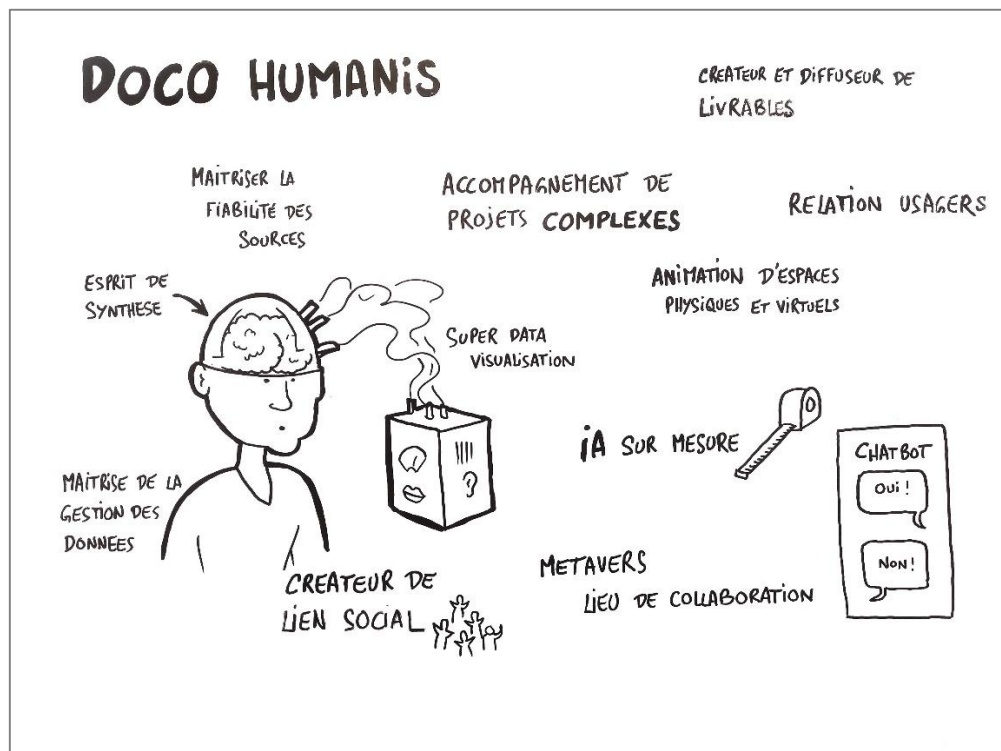 DOCO HUMANIS
CREATEUR ET DIFFUSEUR DE
LIVRABLES
MAITRISER LA
FIABILITÉ DES
SOURCES
ACCOMPAGNEMENT DE
PROJETS COMPLEXES
RELATION USAGERS
ESPRIT DE
SYNTHESE
ANIMATION D'ESPACES
PHYSIQUES ET VIRTUELS
SUPER DATA
VISUALISATION
iA SUR MESURE
CHATBOT
OUI !
NON !
MAITRISE DE LA
GESTION DES
DONNEES
CREATEUR DE
LIEN SOCIAL
METAVERS
LIEU DE COLLABORATION